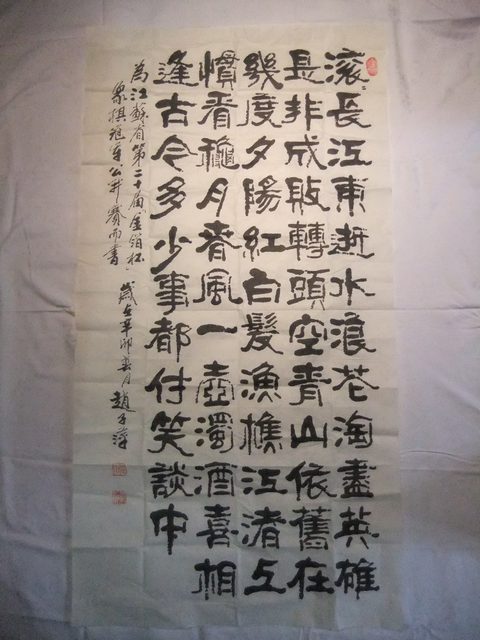 滚〻長江東逝水浪花淘盡英雄
是非成敗轉頭空青山依舊在
幾度夕陽紅白髮漁樵江渚上
慣看龝月春風一壺濁酒喜相
逢古今多少事都付笑談中
為江蘇省第二十届金箔杯、歲在辛卯春月趙子
象棋冠軍公开賽而書